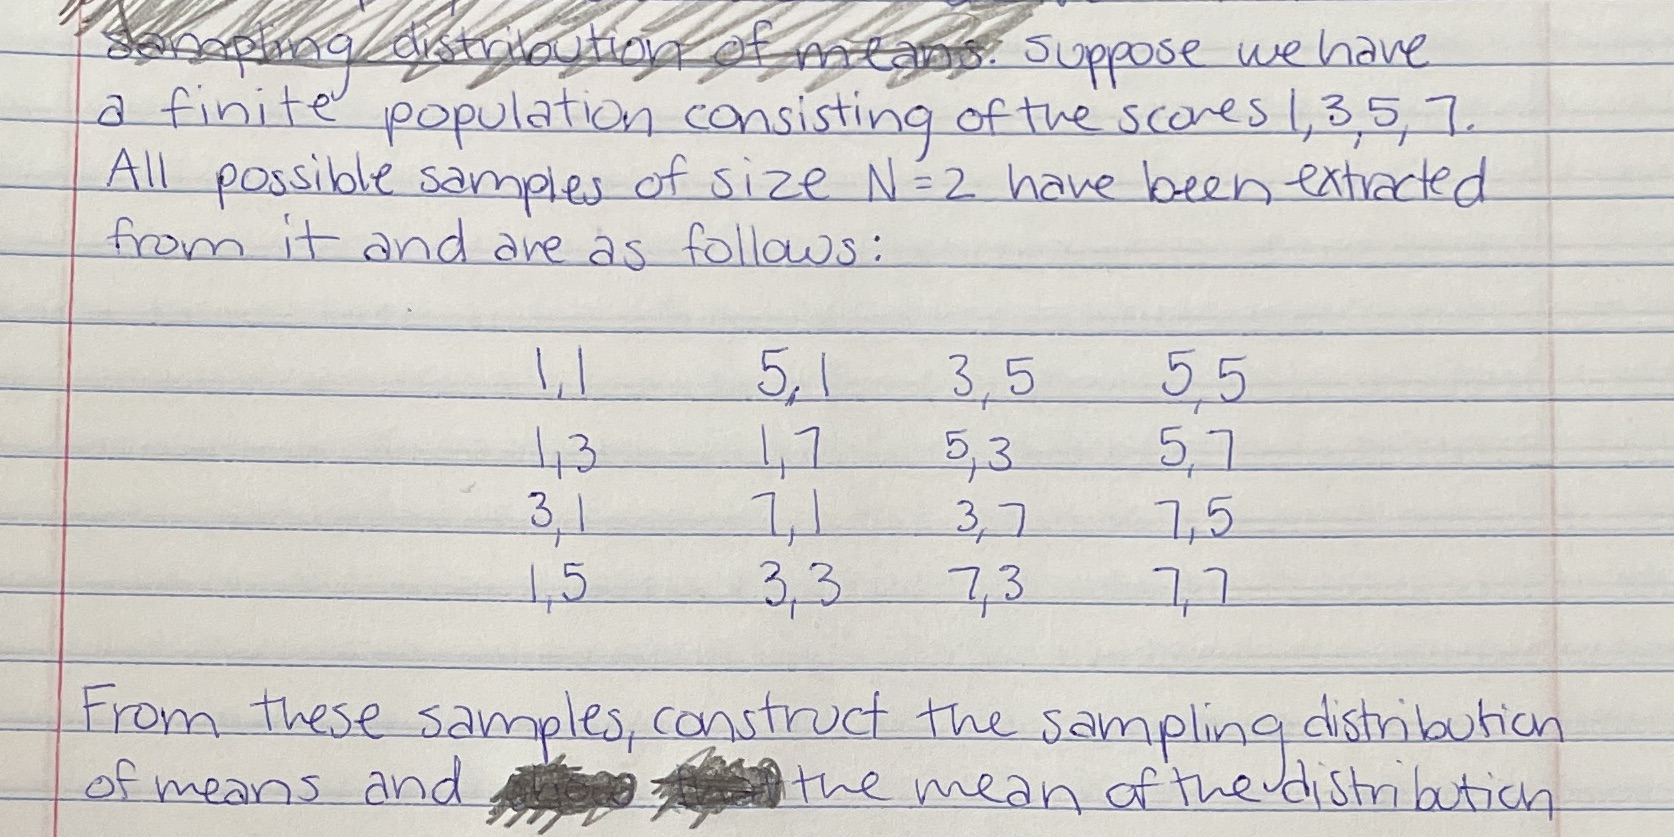 sampling distribution of means. Suppose we have
a finite population consisting of the scores 1, 3, 5, 7.
All possible samples of size N=2 have been extracted
from it and are as follows:
1,1 5,1 3,5 5,5
1,3 1,7 5,3 5,7
3,1 7,1 3,7 7,5
1,5 3,3 7,3 7,7
From these samples, construct the sampling distribution
of means and the mean of the distribution